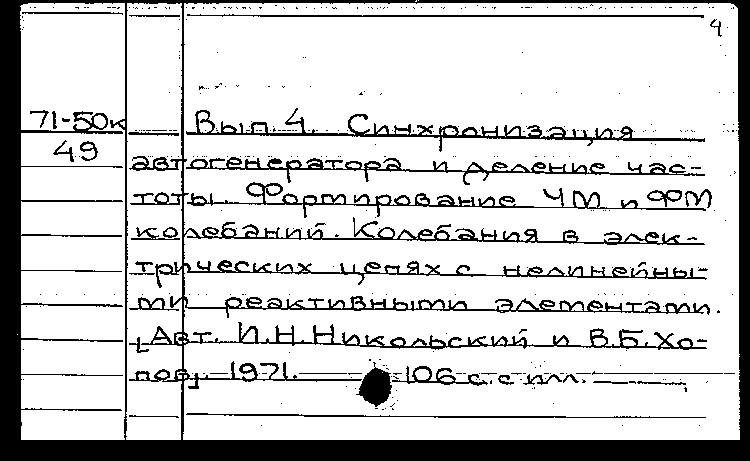 4
71-50к Вып. 4. Синхронизация
49 автогенератора и деление час-
тоты. Формирование ЧМ и ФМ
колебаний. Колебания в элек-
трических цепях с нелинейны-
ми реактивными элементами.
[Авт. И.Н.Никольский и В.Б.Хо-
пов]. 1971. 106 с. с илл.